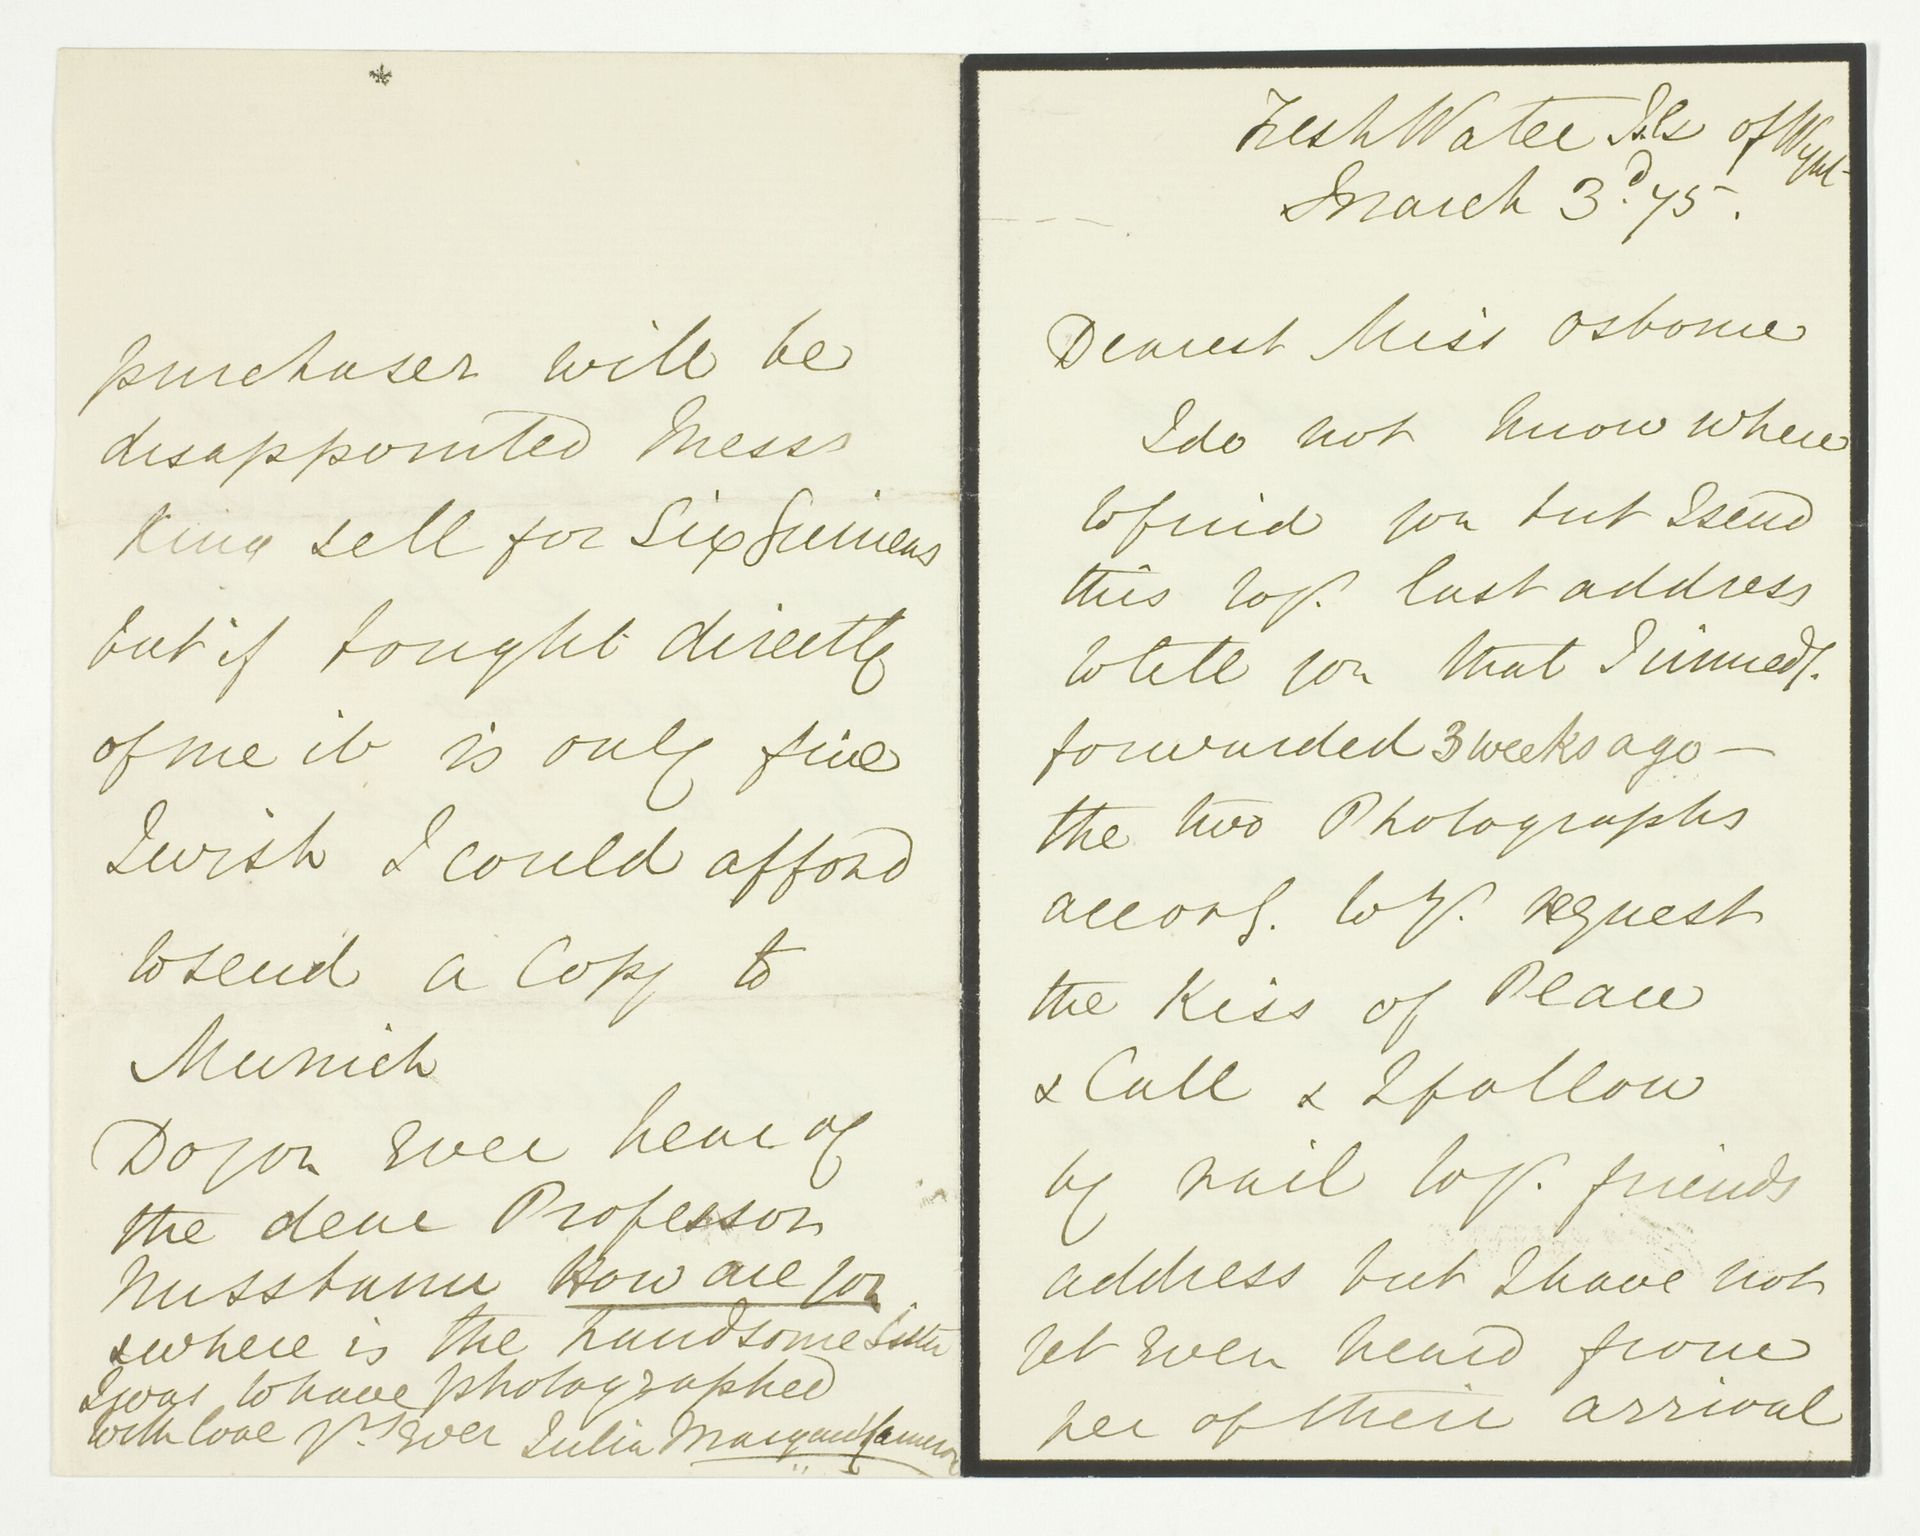 Fresh Water Isle of Wight
March 3d. 75.
Dearest Miss Osborne
I do not know where
to find you but I send
this to yr. last address
to tell you that I immedy.
forwarded 3 weeks ago —
the two Photographs
accorg. to yr. request
the Kiss of Peace
& Call & I follow
by rail to yr. friends
address but I have not
yet Ever heard from
her of their arrival
purchaser will be
disappointed Messrs
King sell for Six Guineas
but if bought directly
of me it is only five
I wish I could afford
to send a Copy to
Munich
Do you Ever hear of
the dear Professor
Nussbaum How are you
& where is the handsome Sister
I was to have photographed
with love yrs Ever Julia Margaret Cameron